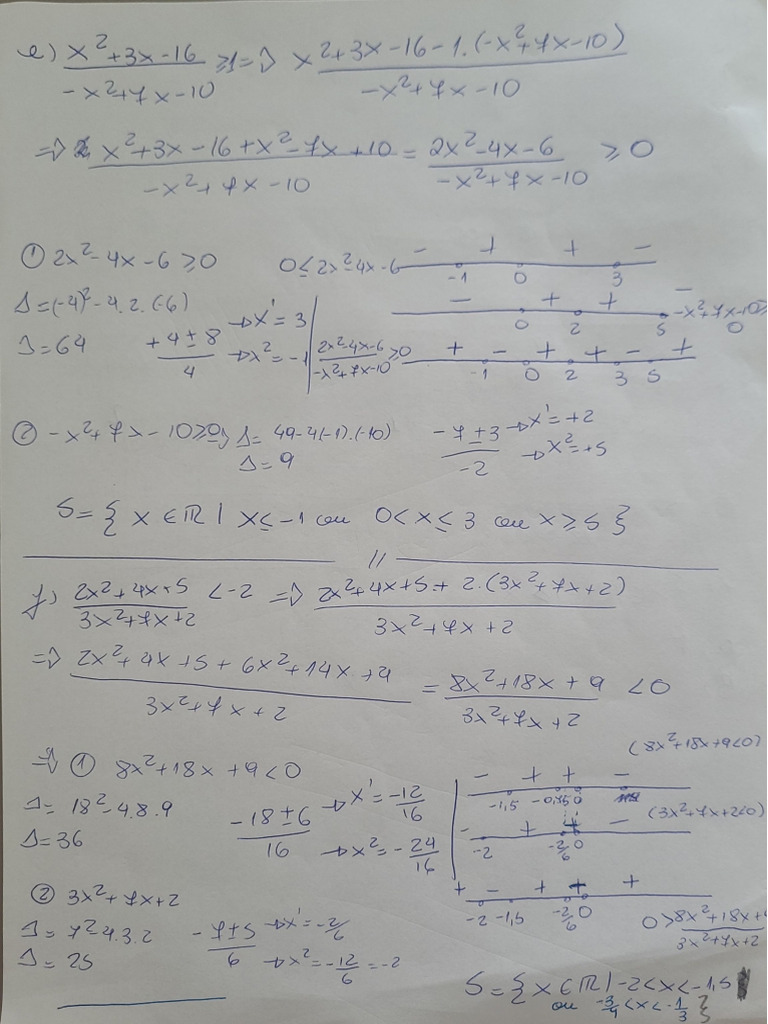 e) x²+3x-16 / -x²+7x-10 ≥1 => x²+3x-16-1.(-x²+7x-10) / -x²+7x-10
=> x²+3x-16+x²-7x+10 / -x²+7x-10 = 2x²-4x-6 / -x²+7x-10 ≥ 0
① 2x²-4x-6 ≥0
Δ=(-4)²-4.2.(-6)
Δ=64
+4±8 / 4 → x'=3
→ x²=-1
0≤2x²-4x-6
- + + -
-1 0 3
- + + -
0 2 5
-x²+7x-10≥0
2x²-4x-6 / -x²+7x-10 ≥0
+ - + + - +
-1 0 2 3 5
② -x²+7x-10≥0 → Δ= 49-4(-1).(-10)
Δ=9
-7±3 / -2 → x'=+2
→ x²=+5
S={ x ∈ ℝ | x≤-1 ou 0<x≤3 ou x≥5 }
//
f) 2x²+4x+5 / 3x²+7x+2 <-2 => 2x²+4x+5+2.(3x²+7x+2) / 3x²+7x+2
=> 2x²+4x+5+6x²+14x+4 / 3x²+7x+2 = 8x²+18x+9 / 3x²+7x+2 <0
=> ① 8x²+18x+9<0
Δ=18²-4.8.9
Δ=36
-18±6 / 16 → x'=-12/16
→ x²=-24/16
(8x²+18x+9<0)
- + + -
-1,5 -0,75 0
(3x²+7x+2<0)
- + + -
-2 -2/6 0
② 3x²+7x+2
Δ=7²-4.3.2
Δ=25
-7±5 / 6 → x'=-2/6
→ x²=-12/6=-2
+ - + + +
-2 -1,5 -2/6 0
0> 8x²+18x+ / 3x²+7x+2
S={x∈ℝ|-2<x<-1,5
ou -3/4<x<-1/3 }